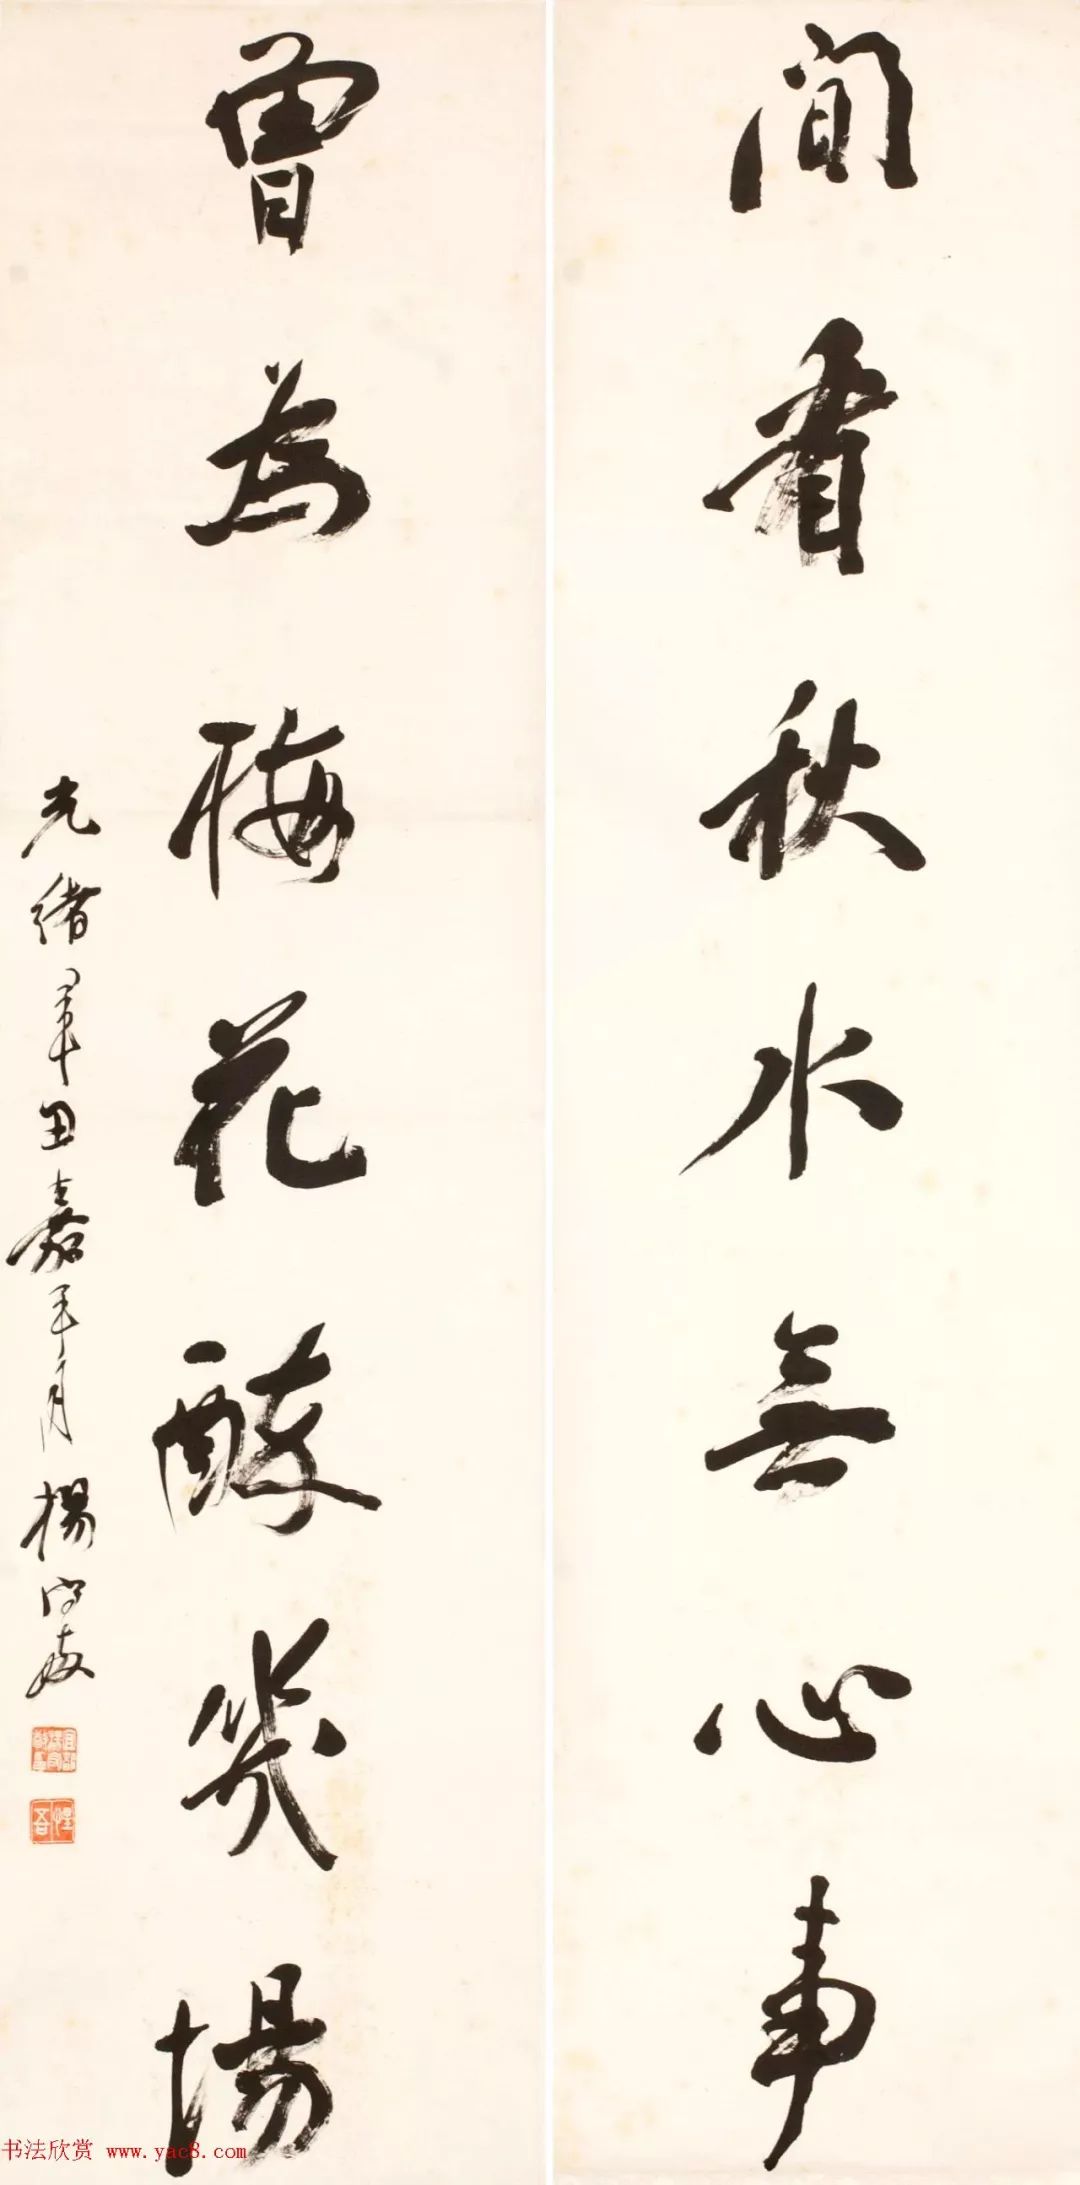 閒看秋水無心事
曾為梅花醉幾場
光緒辛丑嘉平月楊守敬
惺吾
书法欣赏 www.yac8.com